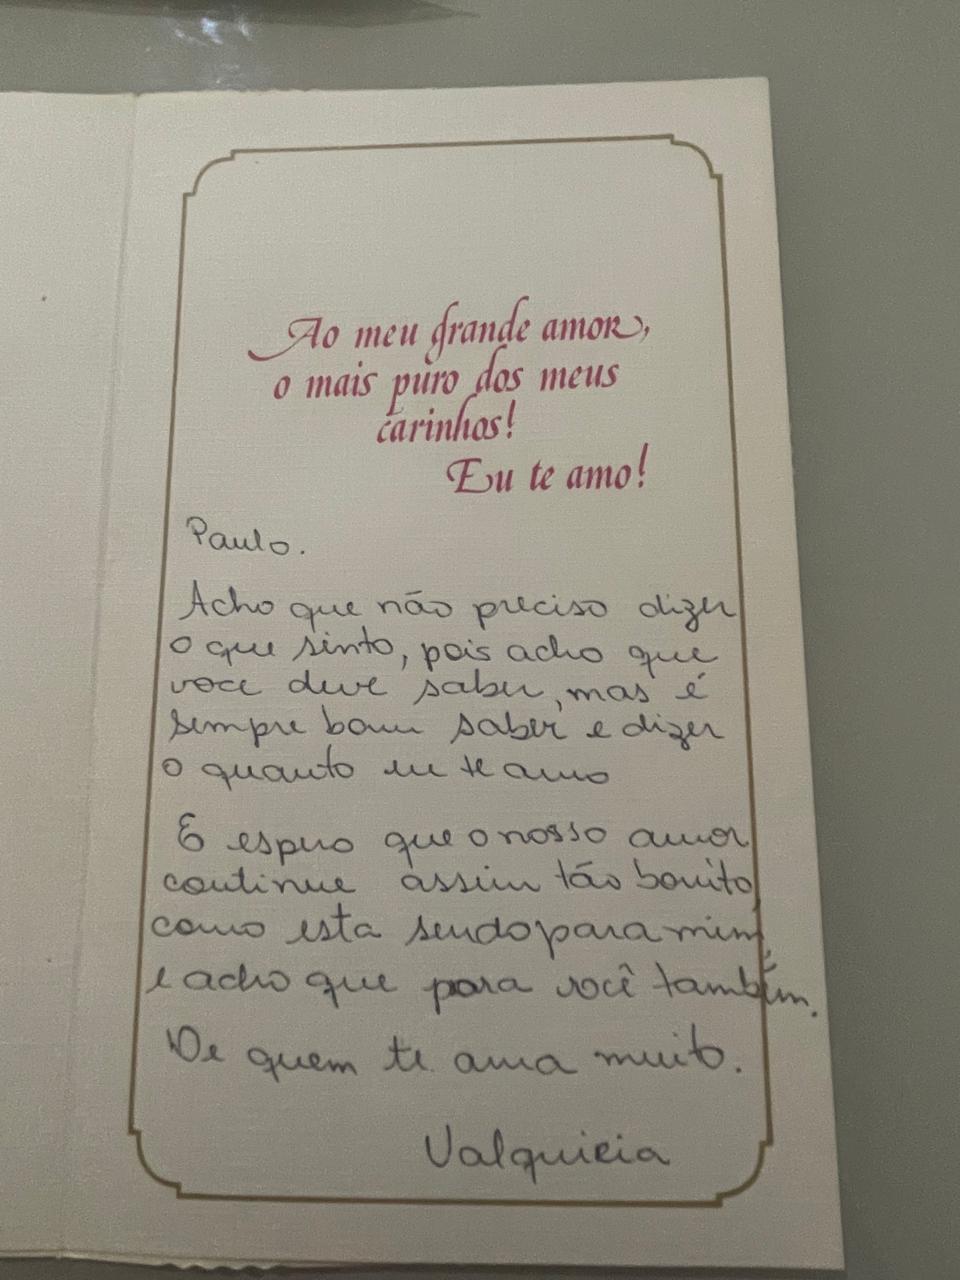 Ao meu grande amor,
o mais puro dos meus
carinhos!
Eu te amo!
Paulo.
Acho que não preciso dizer
o que sinto, pois acho que
voce deve saber, mas é
sempre bom saber e dizer
o quanto eu te amo
E espero que o nosso amor
continue assim tão bonito,
como esta sendo para mim,
e acho que para você também.
De quem te ama muito.
Valquiria